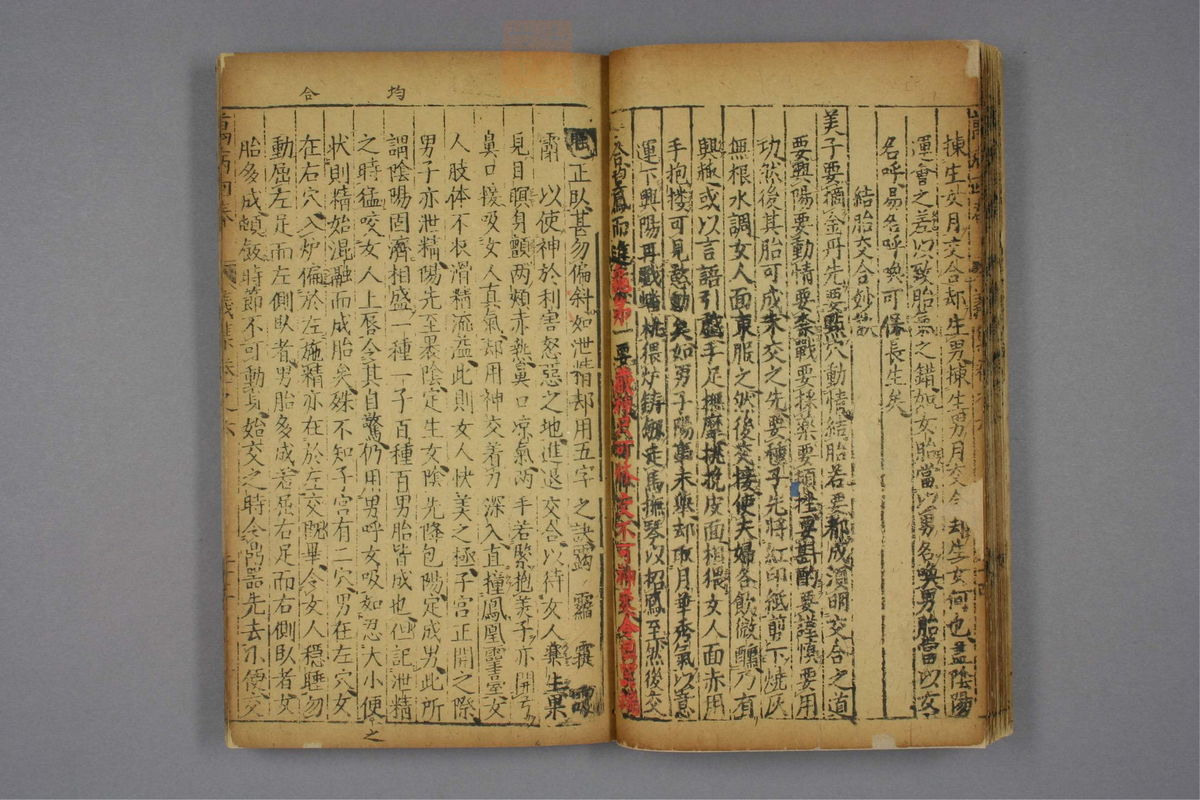 揀生女月交合却生男揀生男月交合却生女何也盖陰陽
運會之差以致胎禀之錯如女胎當以男名喚男胎當以女
名呼易名呼喚可保長生矣
結胎交合妙訣
美子要摘金丹先要點穴動情結胎若要都成須明交合之道
要興陽要動情要柰戰要採藥要要斟酌要謹慎要用
功然後其胎可成未交之先要種子先將紅印紙剪下燒灰
無根水調女人面東服之然後交接使夫婦各飲微醺乃有
興極或以言語引盤手足撫摩挑挽皮面相猥女人面赤用
手抱搂可見欲動矣如男子陽事未舉却取月華秀氣以意
運下興陽再戰蟠桃猥炉鋳劔走馬撫琴以招鳳至然後交
而進一要不可
正卧甚勿偏斜如泄精却用五字之訣
以使神於利害怒惡之地進退交合以待女人藥生果
見目瞑身顫两頰赤熱鼻口凉氣两手若緊抱美子亦開
鼻口接吸女人真氣却用神交着力深入直撞鳳凰臺室女
人肢体不収滑精流溢此則女人快美之極子宮正開之際
男子亦泄精陽先至裹陰定生女陰先降包陽定成男此所
謂陰陽固濟相盛一種一子百種百男胎皆成也但記泄精
之時猛咬女人上唇令其自驚仍用男呼女吸如忍大小便
之
状則精始混融而成胎矣殊不知子宮有二穴男在左穴女
在右穴入炉偏於左施精亦在於左交既畢令女人穏睡勿
動屈左足而左側臥者男胎多成若屈右足而右側臥者女
胎多成頓飯時節不可動身始交之時令器先去小便交
合 均